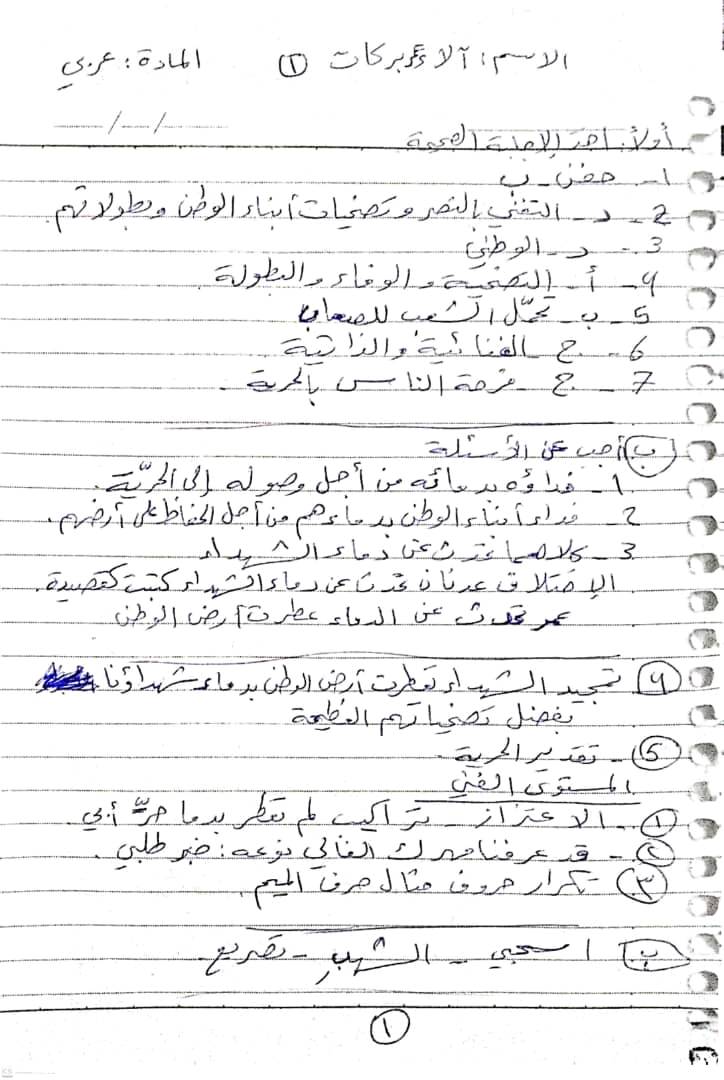 الاسم: آلاء بركات ① المادة: عربي
--/--/--
أولاً: اختر الإجابة الصحيحة
1- خفض - ب
2- د- التغني بالنصر وتضحيات أبناء الوطن وبطولاتهم.
3- د- الوطني
4- أ- التضحية والوفاء والبطولة
5- ب- تحمّل الشعب للصعاب
6- ج- الغنائية والذاتية
7- ج- فرحة الناس بالحرية.
ب) أجب عن الأسئلة
1- فداؤه بدمائه من أجل وصوله إلى الحريّة.
2- فداء أبناء الوطن بدماءهم من أجل الحفاظ على أرضهم.
3- كلاهما تحدث عن دماء الشهداء
الإختلاف عدنان تحدث عن دماء الشهداء كتبت كقصيدة.
عمر تحدث عن الدماء عطرت أرض الوطن
④ تمجيد الشهداء تعطرت أرض الوطن بدماء شهداؤنا
بفضل تضحياتهم العظيمة
⑤- تقدير الحرية.
المستوى الفني
①- الاعتزاز - تراكيب لم تعطر بدما حرّ أبي.
②- قد عرفنا مهرك الغالي نوعه: خبر طلبي.
③- تكرار حروف مثال حرف الميم.
ب) اسحبي - الشهبِ - تصريع.
①